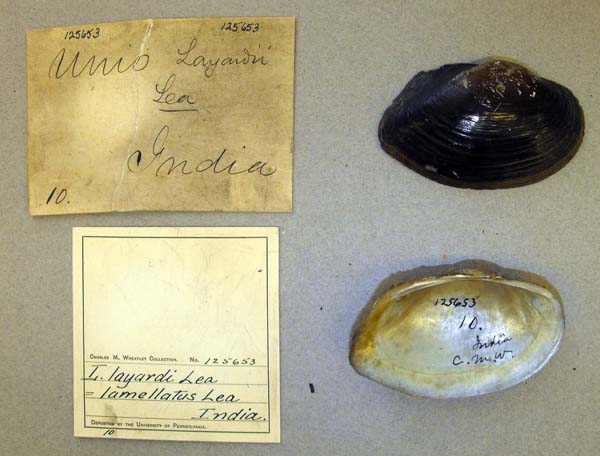 125653 125653
Unio Layardii
Lea
India
10.
CHARLES M. WHEATLEY COLLECTION. No. 125653
L. layardi Lea
= lamellatus Lea
India.
DEPOSITED BY THE UNIVERSITY OF PENNSYLVANIA.
10
125653
10.
India
C.M.W.